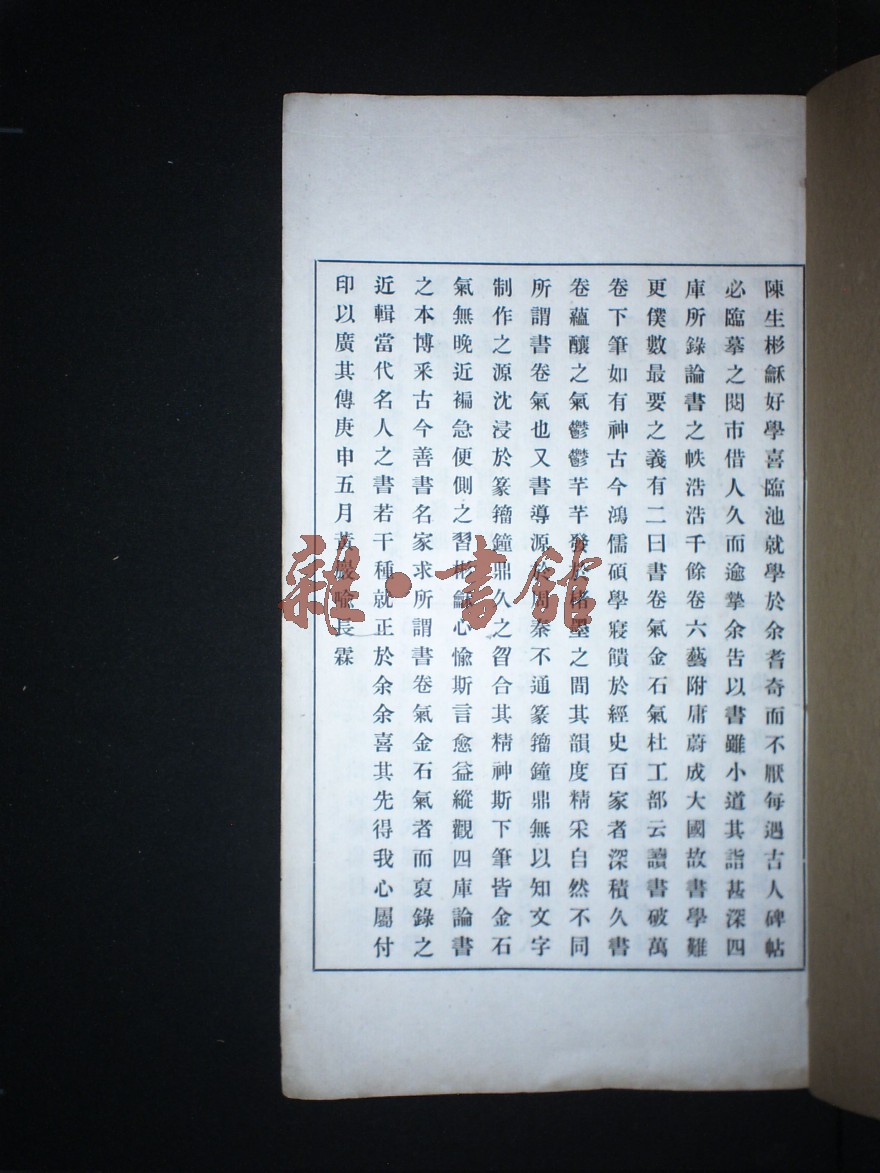 陳生彬龢好學喜臨池就學於余耆奇而不厭每遇古人碑帖
必臨摹之閱市借人久而逾摯余告以書雖小道其詣甚深四
庫所錄論書之帙浩浩千餘卷六藝附庸蔚成大國故書學難
更僕數最要之義有二曰書卷氣金石氣杜工部云讀書破萬
卷下筆如有神古今鴻儒碩學寢饋於經史百家者深積久書
卷蘊釀之氣鬱鬱芊芊發於楮墨之間其韻度精采自然不同
所謂書卷氣也又書導源於周秦不通篆籀鐘鼎無以知文字
制作之源沈浸於篆籀鐘鼎久之曶合其精神斯下筆皆金石
氣無晚近褊急便側之習彬龢心愉斯言愈益縱觀四庫論書
之本博釆古今善書名家求所謂書卷氣金石氣者而裒錄之
近輯當代名人之書若干種就正於余余喜其先得我心屬付
印以廣其傳庚申五月黃巖喻長霖
雜·書館